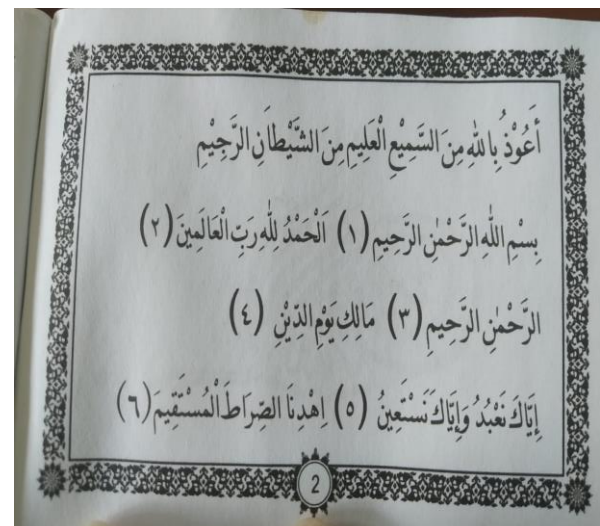 أَعُوْذُ بِاللهِ مِنَ السَّمِيْعِ الْعَلِيمِ مِنَ الشَّيْطَانِ الرَّجِيْمِ
بِسْمِ اللَّهِ الرَّحْمٰنِ الرَّحِيمِ (١) اَلْحَمْدُ لِلَّهِ رَبِّ الْعَالَمِينَ (٢)
الرَّحْمٰنِ الرَّحِيمِ (٣) مَالِكِ يَوْمِ الدِّيْنِ (٤)
إِيَّاكَ نَعْبُدُ وَإِيَّاكَ نَسْتَعِينُ (٥) اِهْدِنَا الصِّرَاطَ الْمُسْتَقِيمَ (٦)
2